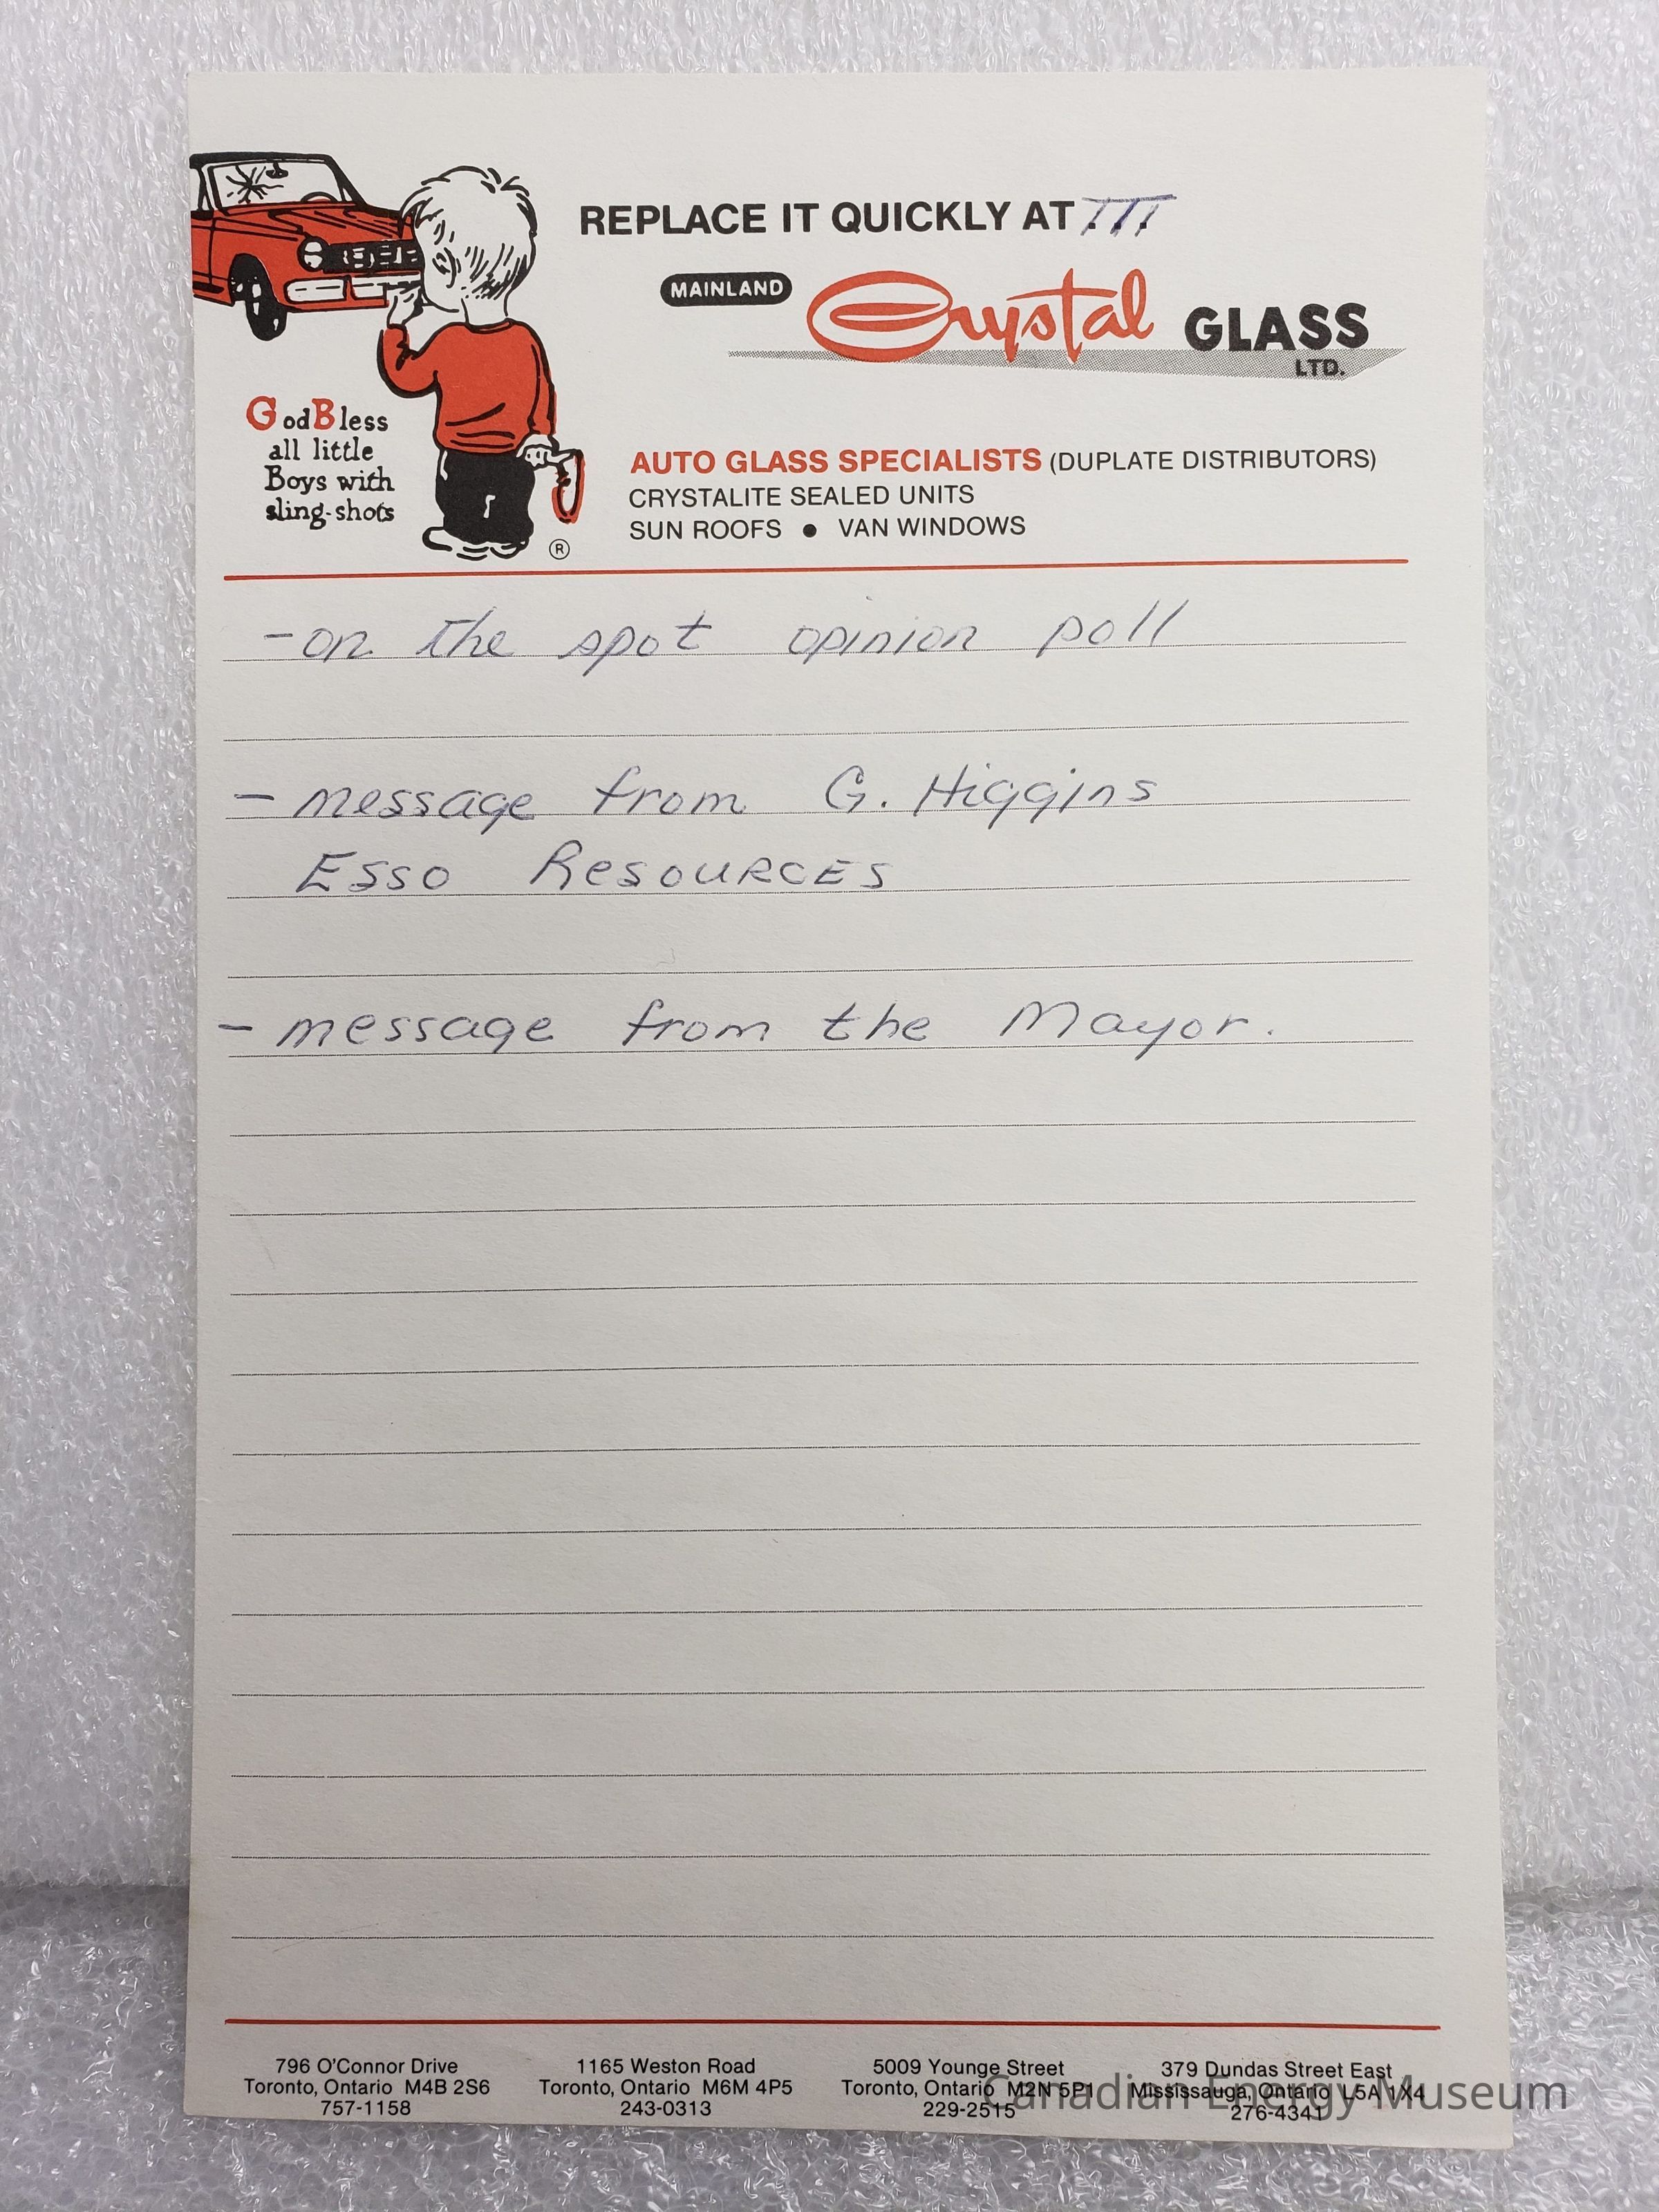 REPLACE IT QUICKLY AT
MAINLAND Crystal GLASS
LTD.
God Bless
all little
Boys with
sling-shots
®
AUTO GLASS SPECIALISTS (DUPLATE DISTRIBUTORS)
CRYSTALITE SEALED UNITS
SUN ROOFS ● VAN WINDOWS
- on the spot opinion poll
- message from G. Higgins
Esso Resources
- message from the Mayor.
796 O'Connor Drive
Toronto, Ontario M4B 2S6
757-1158
1165 Weston Road
Toronto, Ontario M6M 4P5
243-0313
5009 Younge Street
Toronto, Ontario M2N 5P1
229-2515
379 Dundas Street East
Mississauga, Ontario L5A 1X4
276-4341
Canadian Energy Museum